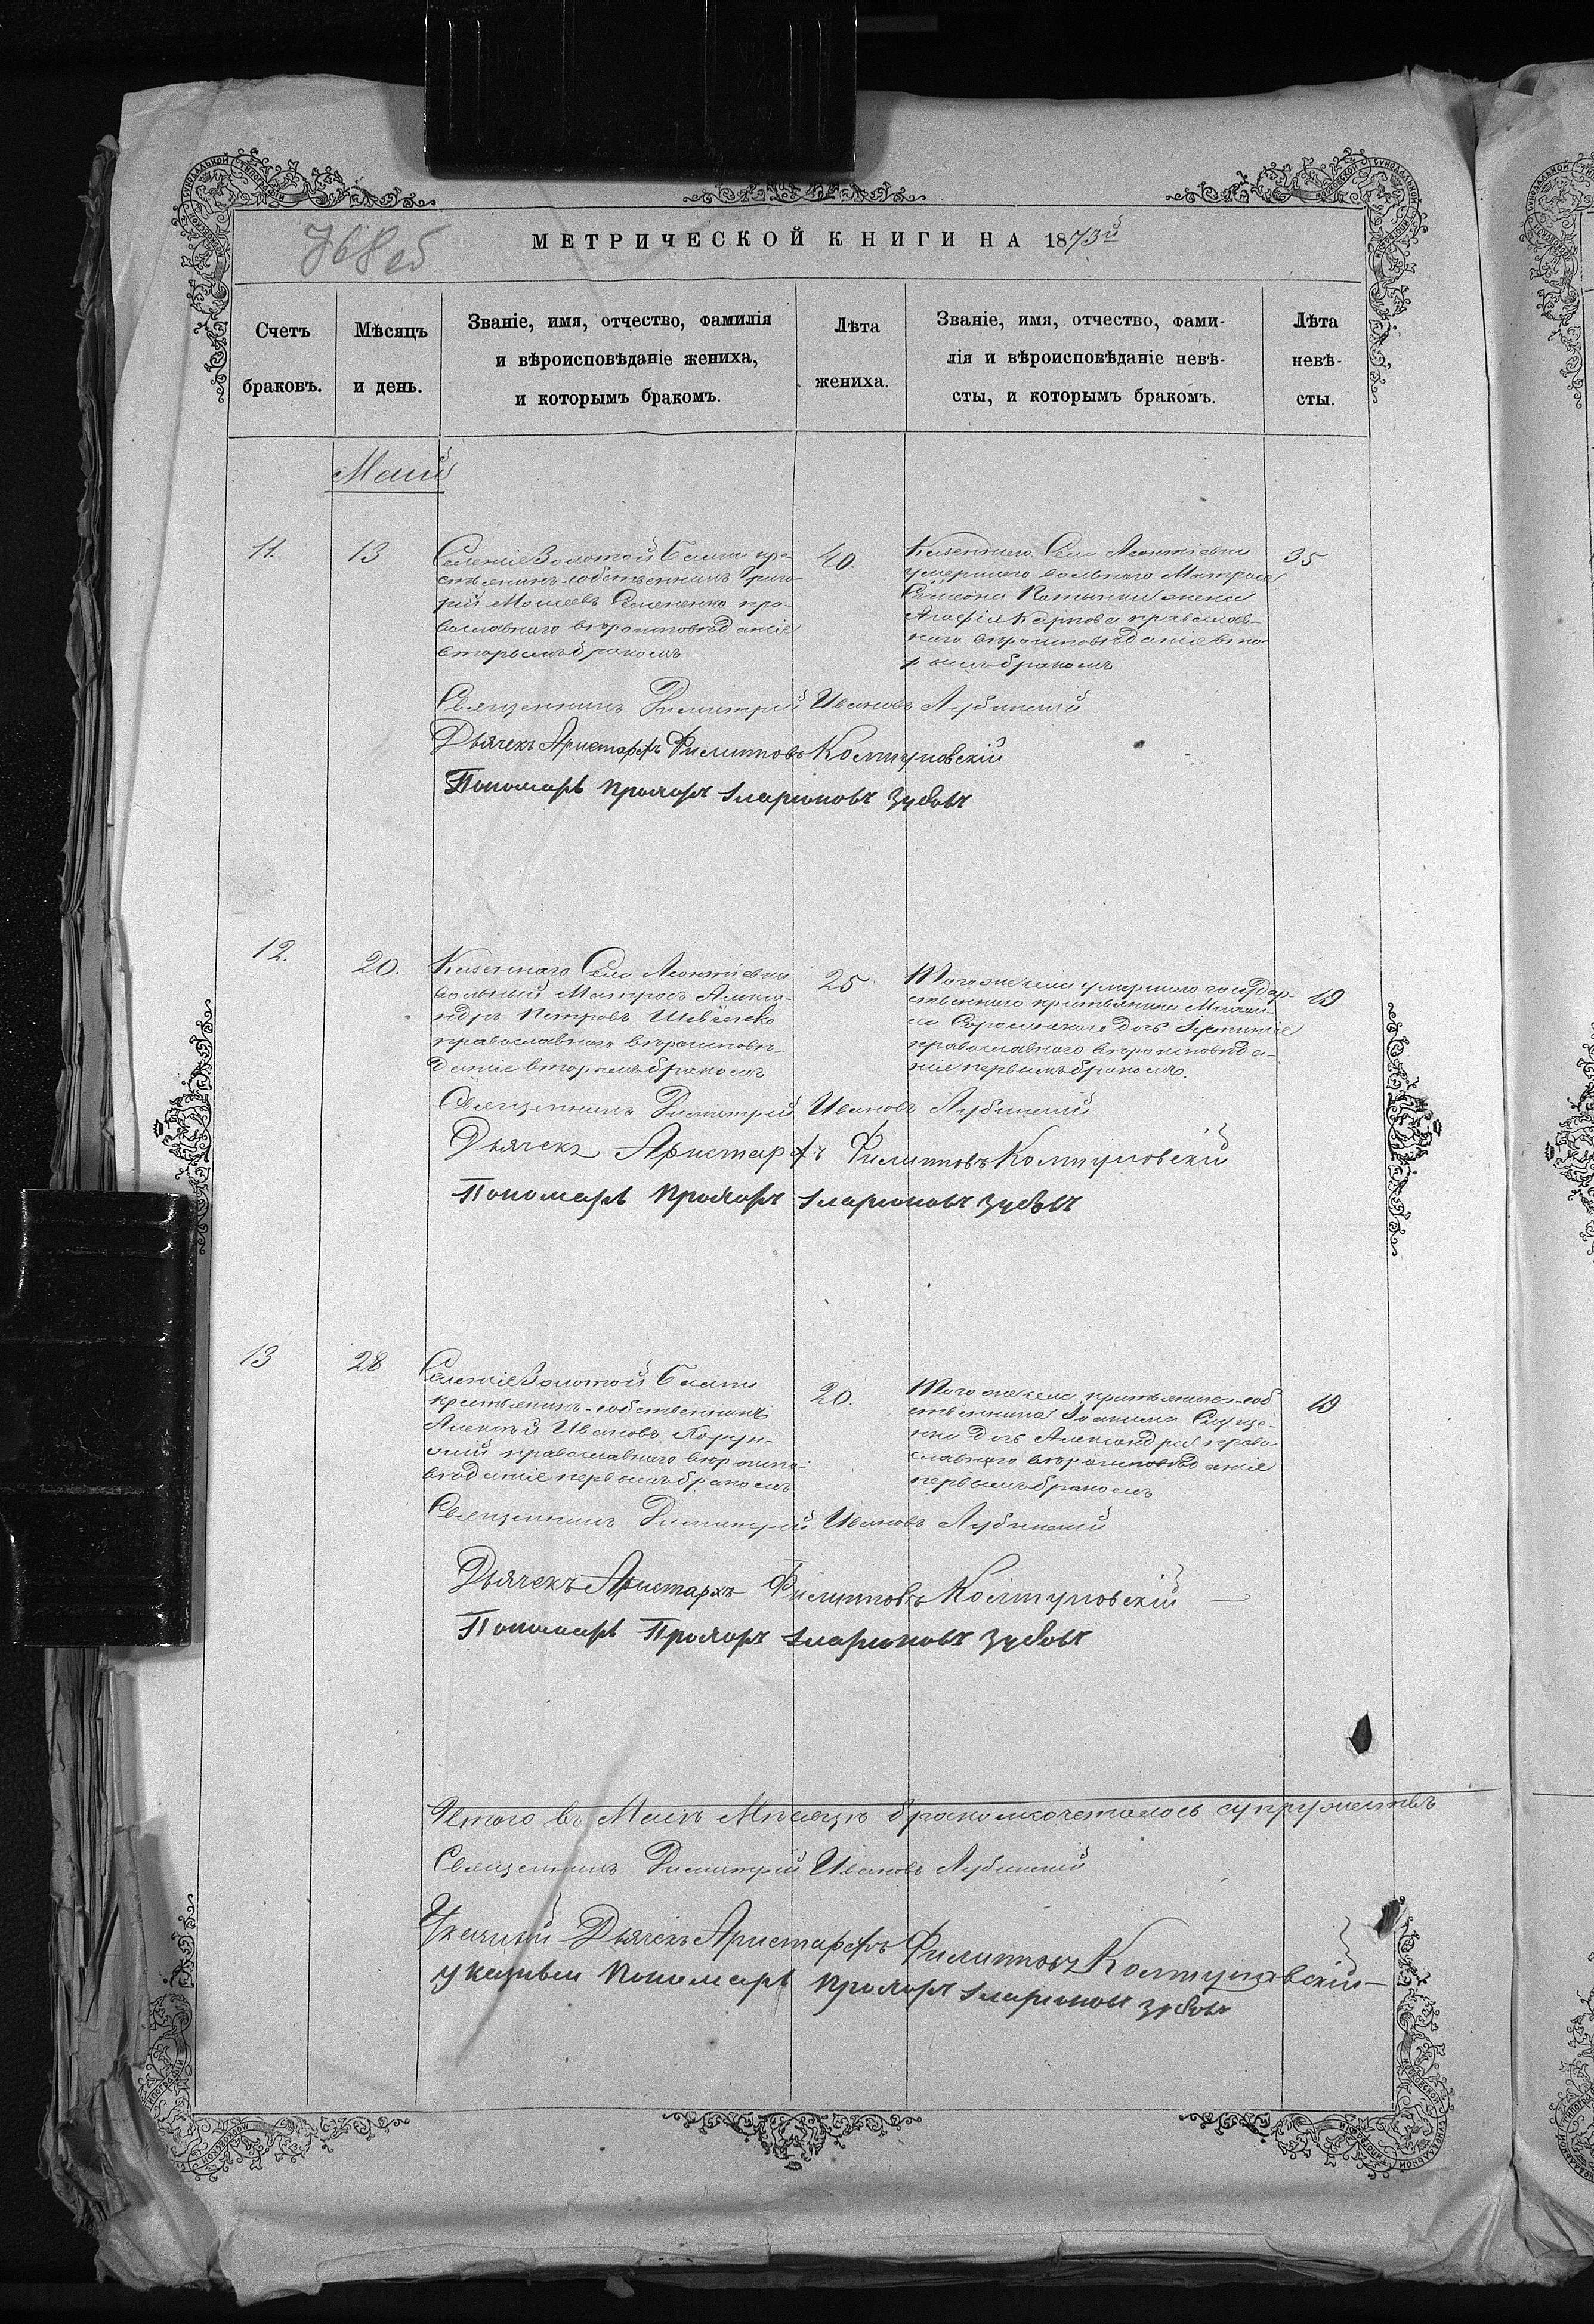 768 об
МЕТРИЧЕСКОЙ КНИГИ НА 1873й
Счетъ
браковъ.
Мѣсяцъ
и день.
Званіе, имя, отчество, фамилія
и вѣроисповѣданіе жениха,
и которымъ бракомъ.
Лѣта
жениха.
Званіе, имя, отчество, фами-
лія и вѣроисповѣданіе невѣ-
сты, и которымъ бракомъ.
Лѣта
невѣ-
сты.
Маій
11.
13
Селенія Золотой Балки кре-
стьянинъ-собственникъ Григо-
рій Моисеевъ Семененко пра-
вославнаго вѣроисповѣданія
вторымъ бракомъ
40.
Казеннаго Села Леонтіевки
умершаго вольнаго Матроса
Симеона жена
Агафія Карпова православ-
наго вѣроисповѣданія вто-
рымъ бракомъ
35
Священникъ Димитрій Ивановъ Лубинскій
Дьячекъ Аристархъ Филиповъ Колтуновскій
Пономарь Прохоръ Іларионовъ Зубовъ
12.
20.
Казеннаго Села Леонтіевки
вольный Матросъ Алекса-
ндръ Петровъ Шевченко
православнаго вѣроисповѣ-
данія вторымъ бракомъ
25
Того же села умершаго государ-
ственнаго крестьянина Михаи-
ла дочь
православнаго вѣроисповѣда-
нія первымъ бракомъ.
19
Священникъ Димитрій Ивановъ Лубинскій
Дьячекъ Аристархъ Филиповъ Колтуновскій
Пономарь Прохоръ Іларионовъ Зубовъ
13
28
Селенія Золотой Балки
крестьянинъ-собственникъ
Алексѣй Ивановъ Корун-
жій православнаго вѣроиспо-
вѣданія первымъ бракомъ
20.
Того же села крестьянина-соб
ственника Іоакима Слуце-
нка дочь Александра право-
славнаго вѣроисповѣданія
первымъ бракомъ
19
Священникъ Димитрій Ивановъ Лубинскій
Дьячекъ Аристархъ Филиповъ Колтуновскій
Пономарь Прохоръ Іларионовъ Зубовъ
Итого въ Маіѣ Мѣсяцѣ бракомъ сочеталось супружествъ
Священникъ Димитрій Ивановъ Лубинскій
Указный Дьячекъ Аристархъ Филиповъ Колтуновскій
указный Пономарь Прохоръ Іларионовъ Зубовъ